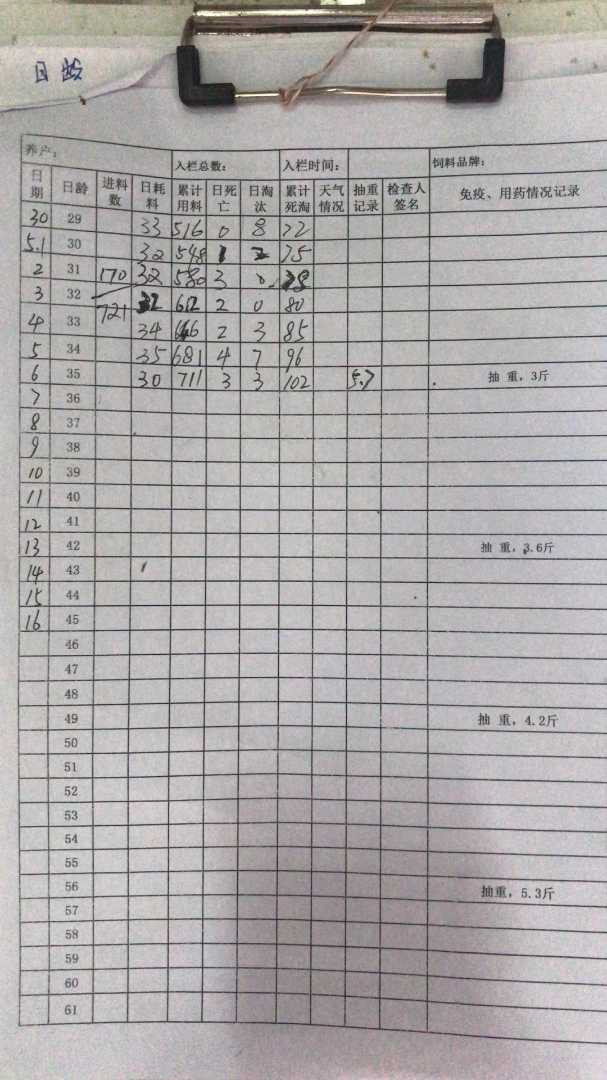 日龄
养户： 入栏总数： 入栏时间： 饲料品牌：
日期 日龄 进料数 日耗料 累计用料 日死亡 日淘汰 累计死淘 天气情况 抽重记录 检查人签名 免疫、用药情况记录
30 29 33 516 0 8 72
5.1 30 32 548 1 2 75
2 31 170 32 580 3 0 78
3 32 32 612 2 0 80
4 33 721 34 646 2 3 85
5 34 35 681 4 7 96
6 35 30 711 3 3 102 5.7 抽 重，3斤
7 36
8 37
9 38
10 39
11 40
12 41
13 42 抽 重，3.6斤
14 43
15 44
16 45
46
47
48
49 抽 重，4.2斤
50
51
52
53
54
55
56 抽重，5.3斤
57
58
59
60
61